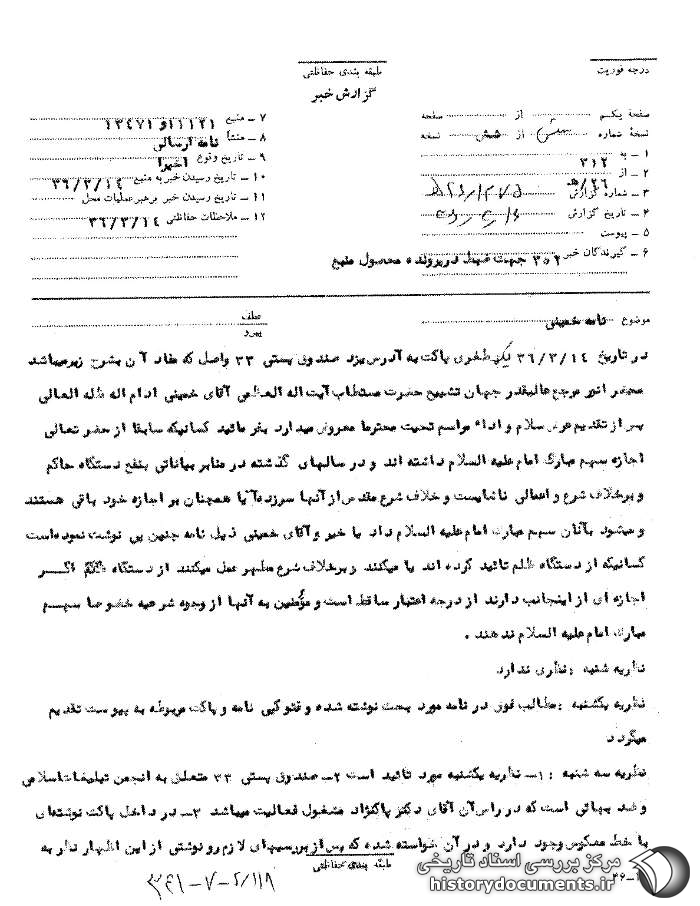 درجه فوریت
طبقه بندی حفاظتی
گزارش خبر
صفحه یکم از صفحه
نسخه شماره شش از شش نسخه
۱ـ به ۳۱۲
۲ـ از ۲۶/ه‍
۳ـ شماره گزارش
۴ـ تاریخ گزارش
۵ـ پیوست
۶ـ گیرندگان خبر ۳۰۲ جهت ضبط در پرونده محصول منبع
۷ـ منبع ۱۱۲۱ و ۱۳۴۷۱
۸ـ منشأ نامه ارسالی
۹ـ تاریخ وقوع اخیرا
۱۰ـ تاریخ رسیدن خبر به منبع ۳۶/۳/۱۴
۱۱ـ تاریخ رسیدن خبر برهبر عملیات محل
۱۲ـ ملاحظات حفاظتی ۳۶/۳/۱۴
موضوع نامه خمینی
عطف
پیرو
در تاریخ ۳۶/۳/۱۴ یک طغری پاکت به آدرس یزد صندوق پستی ۳۳ واصل که مفاد آن بشرح زیر میباشد
محضر انور مرجع عالیقدر جهان تشییع حضرت مستطاب آیت اله العظمی آقای خمینی ادام اله ظله العالی
پس از تقدیم عرض سلام و اداء مراسم تحیت محترما معروض میدارد بفرمائید کسانیکه سابقا از حضرتعالی
اجازه سهم مبارک امام علیه السلام داشته اند و در سالهای گذشته در منابر بیاناتی بنفع دستگاه حاکم
و برخلاف شرع و اعمالی ناشایست و خلاف شرع مقدس از آنها سرزده آیا همچنان بر اجازه خود باقی هستند
و میشود بآنان سهم مبارک امام علیه السلام داد یا خیر و آقای خمینی ذیل نامه چنین پی نوشت نموده است
کسانیکه از دستگاه ظلم تائید کرده اند یا میکنند و برخلاف شرع مطهر عمل میکنند از دستگاه اگر
اجازه ای از اینجانب دارند از درجه اعتبار ساقط است و مؤمنین به آنها از وجوه شرعیه خصوصا سهم
مبارک امام علیه السلام ندهند .
نظریه شنبه : نظری ندارد
نظریه یکشنبه : مطالب فوق در نامه مورد بحث نوشته شده و فتوکپی نامه و پاکت مربوطه به پیوست تقدیم
میگردد
نظریه سه شنبه : ۱ـ نظریه یکشنبه مورد تائید است ۲ـ صندوق پستی ۳۳ متعلق به انجمن تبلیغات اسلامی
و ضد بهائی است که در راس آن آقای دکتر پاکنژاد مشغول فعالیت میباشد ۳ـ در داخل پاکت نوشته‌ای
با خط معکوس وجود دارد و در آن خواسته شده که پس از بررسیهای لازم رونوشتی از این اظهار نظر به
طبقه بندی حفاظتی
۳۶۱-۷-۲/۱۱۹
مرکز بررسی اسناد تاریخی
historydocuments.ir